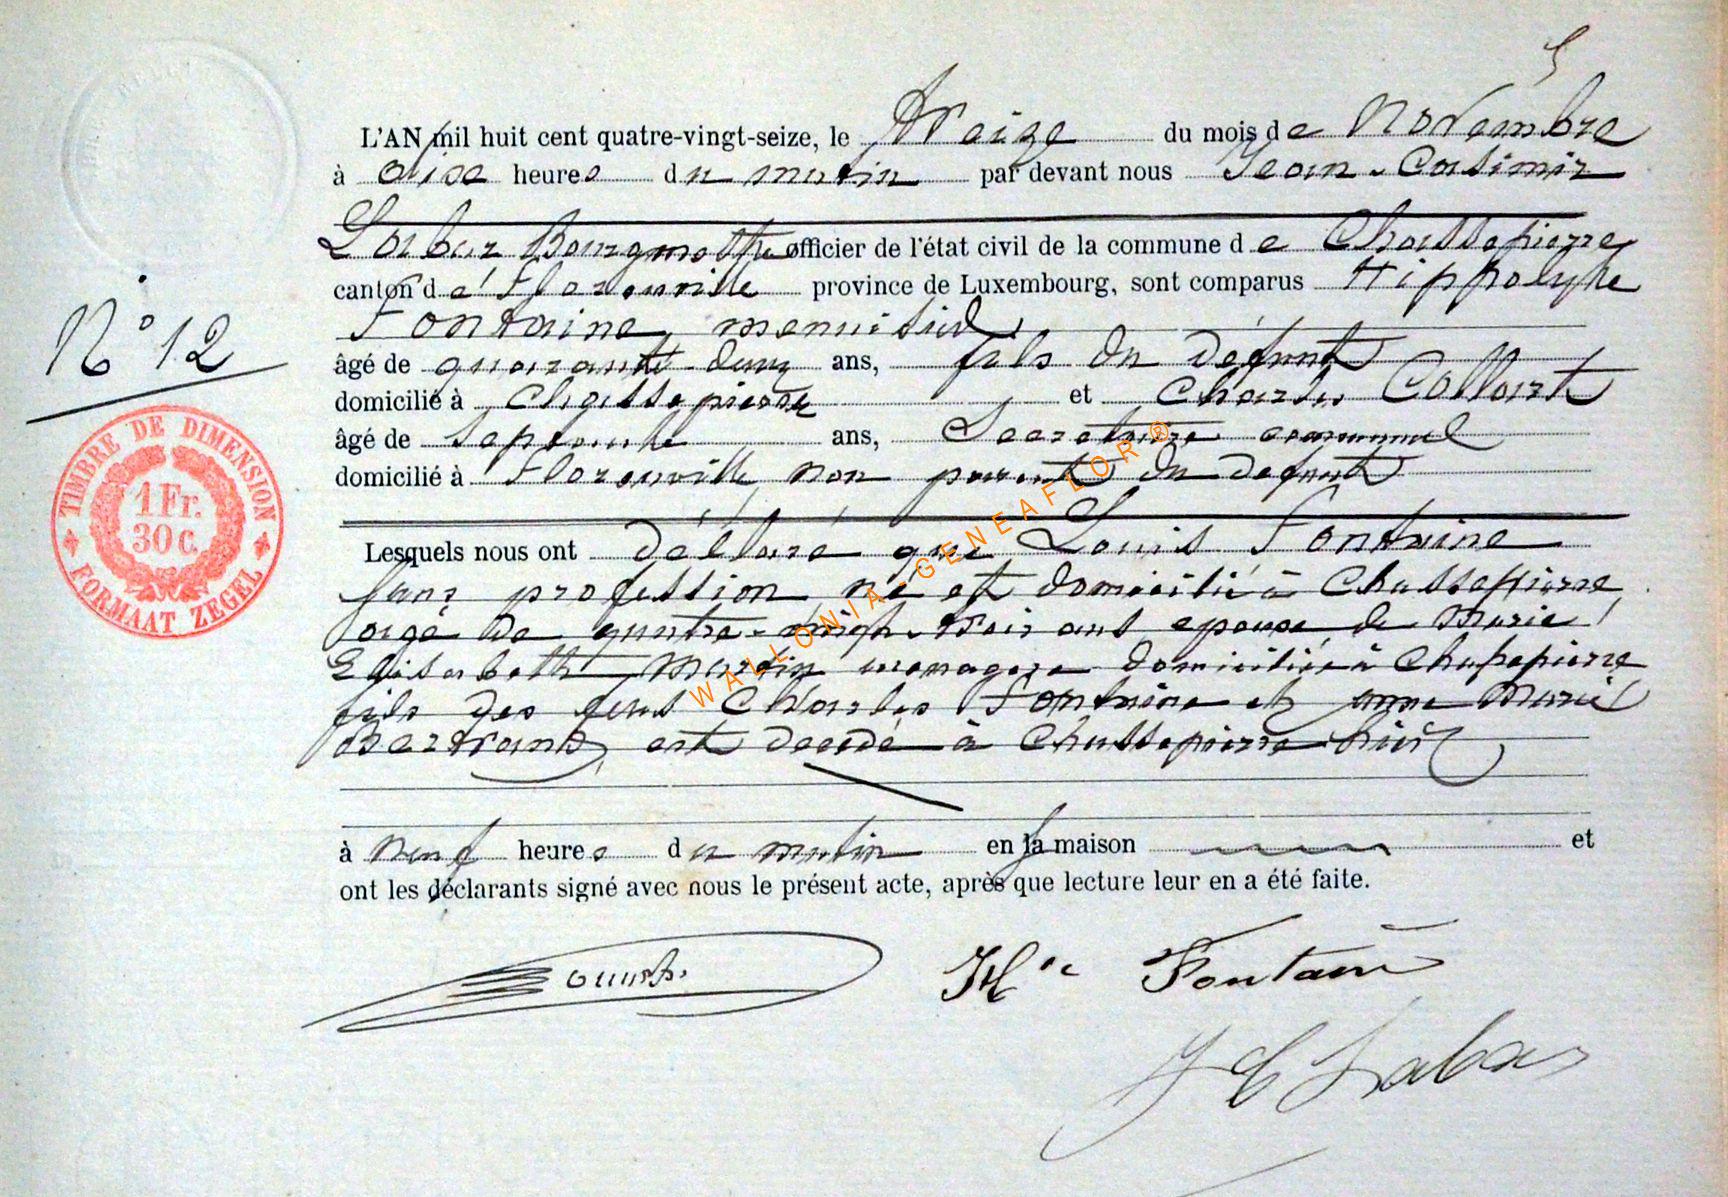 5
L'AN mil huit cent quatre-vingt-seize, le treize du mois de Novembre
à dise heures du matin par devant nous Jean-Casimir
Labar Bourgmestre officier de l'état civil de la commune de Chassepierre
canton de Florenville province de Luxembourg, sont comparus Hippolyte
Fontaine, menuisier,
âgé de quarante-deux ans, fils du défunt
domicilié à Chassepierre et Charles Collart
âgé de septante ans, Secretaire communal
domicilié à Florenville non parent du defunt
N° 12
TIMBRE DE DIMENSION
1 Fr.
30 C.
FORMAAT ZEGEL
Lesquels nous ont déclaré que Louis Fontaine
sans profession né et domicilié à Chassepierre
agé de quatre-vingt-trois ans epoux de Marie
Elisabeth Martin menagere domiciliée à Chassepierre
fils des feus Charles Fontaine et Anne Marie
Bertrand, est decedé à Chassepierre hier
à neuf heures du matin en sa maison et
ont les déclarants signé avec nous le présent acte, après que lecture leur en a été faite.
Hte Fontaine
J C Labar
WALLONIA-GENEAFLOR®